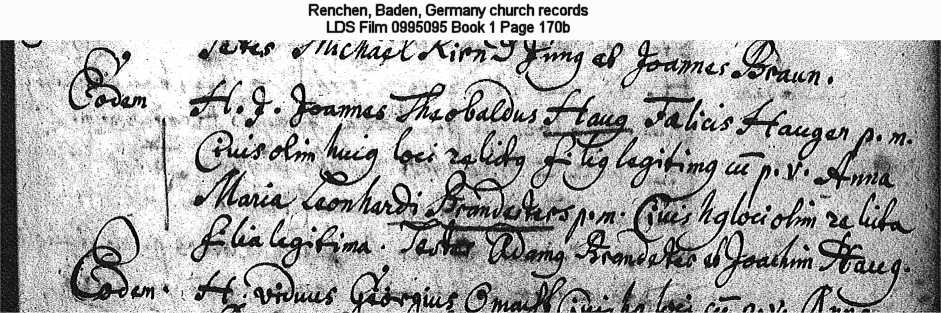 Renchen, Baden, Germany church records
LDS Film 0995095 Book 1 Page 170b
Testes Michaël Kirn Jung et Joannes Braun.
Eodem H. J. Joannes Theobaldus Haug Fælicis Haugen p. m.
Civis olim huig loci relictg filig legitimg cū p. v. Anna
Maria Leonhardi Brandesters p. m. Civis hg loci olim relicta
filia legitima. Testes Adamg et Joachim Haug.
Eodem. H. viduus Geörgius civis hg loci cū p. v. Anna